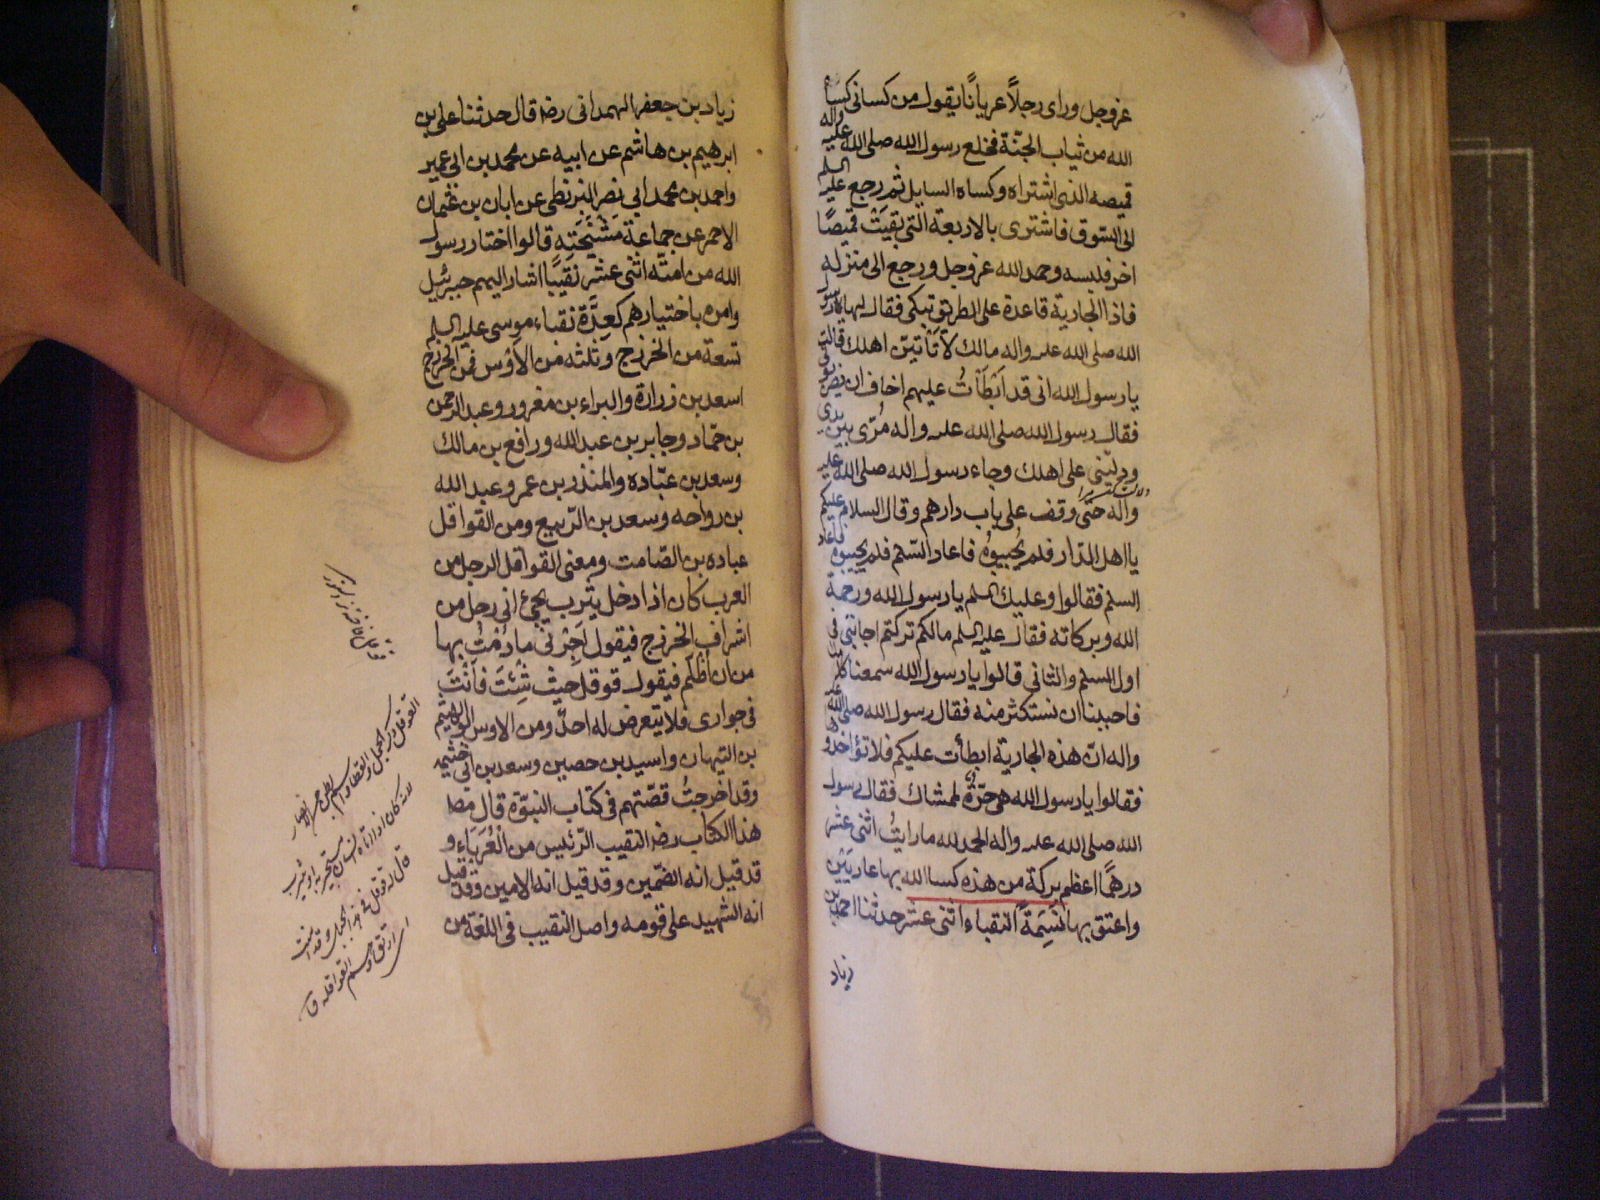 عز وجل وراى رجلاً عرياناً يقول من كسانى كساه
الله من ثياب الجنّة فخلع رسول الله صلى الله عليه واله
قميصه الذى اشتراه وكساه السايل ثم رجع عليه السلم
الى السّوق فاشترى بالاربعة التى بقيَتْ قميصًا
اخر فلبسه وحمد الله عز وجل ورجع الى منزله
فاذا الجارية قاعدة على الطريق تبكى فقال لها رسول
الله صلى الله عليه واله مالك لا تَاتينَ اهلك قالت
يا رسول الله انى قد اَبْطَأتُ عليهم اخاف ان يضربونى
فقال رسول الله صلى الله عليه واله مُرّى بين يدى
ودلّينى على اهلك وجاء رسول الله صلى الله عليه
واله حتّى وقف على باب دارهم وقال السلام عليكم
يا اهل الدّار فلم يُجيبوُه فاعاد السّلم فلم يجيبوه فاعاد
السلم فقالوا وعليك السلم يا رسول الله ورحمة
الله وبركاته فقال عليه السلم مالكم تركتم اجابتى فى
اول السلم والثانى قالوا يا رسول الله سمعنا كلامك
فاحببنا ان نستكثر منه فقال رسول الله صلى الله عليه
واله انّ هذه الجارية ابطأت عليكم فلا تؤاخذوها
فقالوا يا رسول الله هى حرّةٌ لممشاك فقال رسول
الله صلى الله عليه واله الحمد لله ما رايتُ اثنى عشر
درهمًا اعظم بركة من هذه كسا الله بها عاريَيْن
واعتق بها نَسَمَةً النقباء اثنى عشر حدثنا احمد بن
زياد
زياد بن جعفر الهمدانى رضه قال حدثنا على بن
ابرهيم بن هاشم عن ابيه عن محمد بن ابى عمير
واحمد بن محمد ابى نصر البزنطى عن ابان بن عثمان
الاحمر عن جماعة مَشْيَخَتِهِ قالوا اختار رسول
الله من امته اثنى عشر نَقيبًا اشار اليهم جبرئيل
وامره باختيارهم كعِدَّة نقباء موسى عليه السلم
تسعة من الخزرج وثلثه من الاَوْس فمن الخزرج
اسعد بن زرارة والبراء بن مغرور وعبد الرحمن
بن حمّاد وجابر بن عبد الله ورافع بن مالك
وسعد بن عبّاده والمنذر بن عمرو عبد الله
بن رواحه وسعد بن الرّبيع ومن القواقل
عباده بن الصّامت ومعنى القواقل الرجل من
العرب كان اذا دخل يثرب يجئ انى رجل من
اشراف الخزرج فيقول اَجِرْنى ما دُمْتُ بها
من ان اُظلَم فيقول قوقل حيث شِئتَ فاَنْتَ
فى جوارى فلا يتعرض له احدٌ ومن الاوس ابو الهيثم
بن التيهان واسيد بن حصين وسعد بن ابى خثيمه
وقد اخرجتُ قصّتهم فى كتاب النبوّة قال مص
هذا الكتاب رضه النقيب الرّئيس من الْعُرَفاء و
قد قيل انه الضّمين وقد قيل انه الامين وقد قيل
انه الشهيد على قومه واصل النقيب فى اللغة من